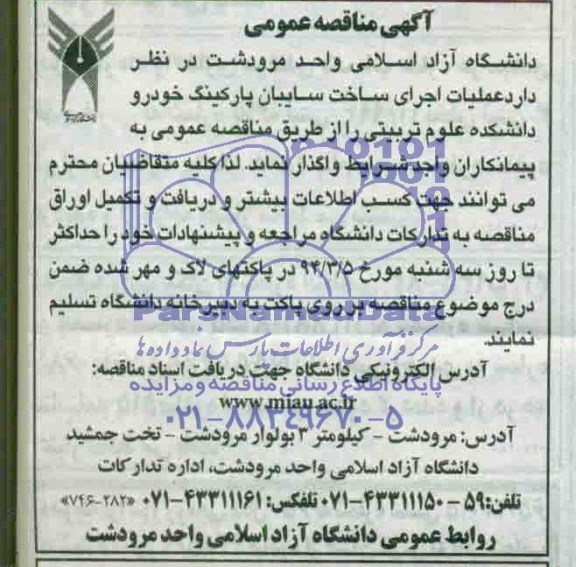 آگهی مناقصه عمومی
دانشگاه آزاد اسلامی واحد مرودشت در نظر
داردعملیات اجرای ساخت سایبان پارکینگ خودرو
دانشکده علوم تربیتی را از طریق مناقصه عمومی به
پیمانکاران واجد شرایط واگذار نماید. لذا کلیه متقاضیان محترم
می توانند جهت کسب اطلاعات بیشتر و دریافت و تکمیل اوراق
مناقصه به تدارکات دانشگاه مراجعه و پیشنهادات خود را حداکثر
تا روز سه شنبه مورخ ۹۴/۳/۵ در پاکتهای لاک و مهر شده ضمن
درج موضوع مناقصه بر روی پاکت به دبیرخانه دانشگاه تسلیم
ParsNamadData
نمایند.
مرکز فرآوری اطلاعات پارس نماد داده ها
آدرس الکترونیکی دانشگاه جهت دریافت اسناد مناقصه:
پایگاه اطلاع رسانی مناقصه و مزایده
www.miau.ac.ir
۰۲۱-۸۸۳۴۹۶۷۰-۵
آدرس: مرودشت - کیلومتر ۳ بولوار مرودشت - تخت جمشید
دانشگاه آزاد اسلامی واحد مرودشت، اداره تدارکات
تلفن: ۵۹-۰۷۱-۴۳۳۱۱۱۵۰ تلفکس: ۰۷۱-۴۳۳۱۱۱۶۱ «۷۴۶-۲۸۲»
روابط عمومی دانشگاه آزاد اسلامی واحد مرودشت